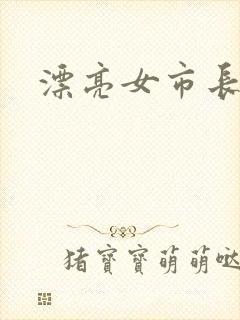 漂亮女市長
猪寶寶萌萌哒